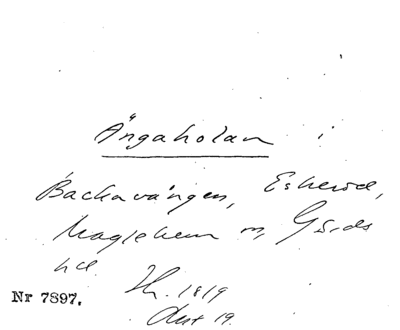 Ängaholan i
Backavången, Eskeröd,
Maglehem sn, Gärds
hd.
Nr 7897.
1819
Akt 19.